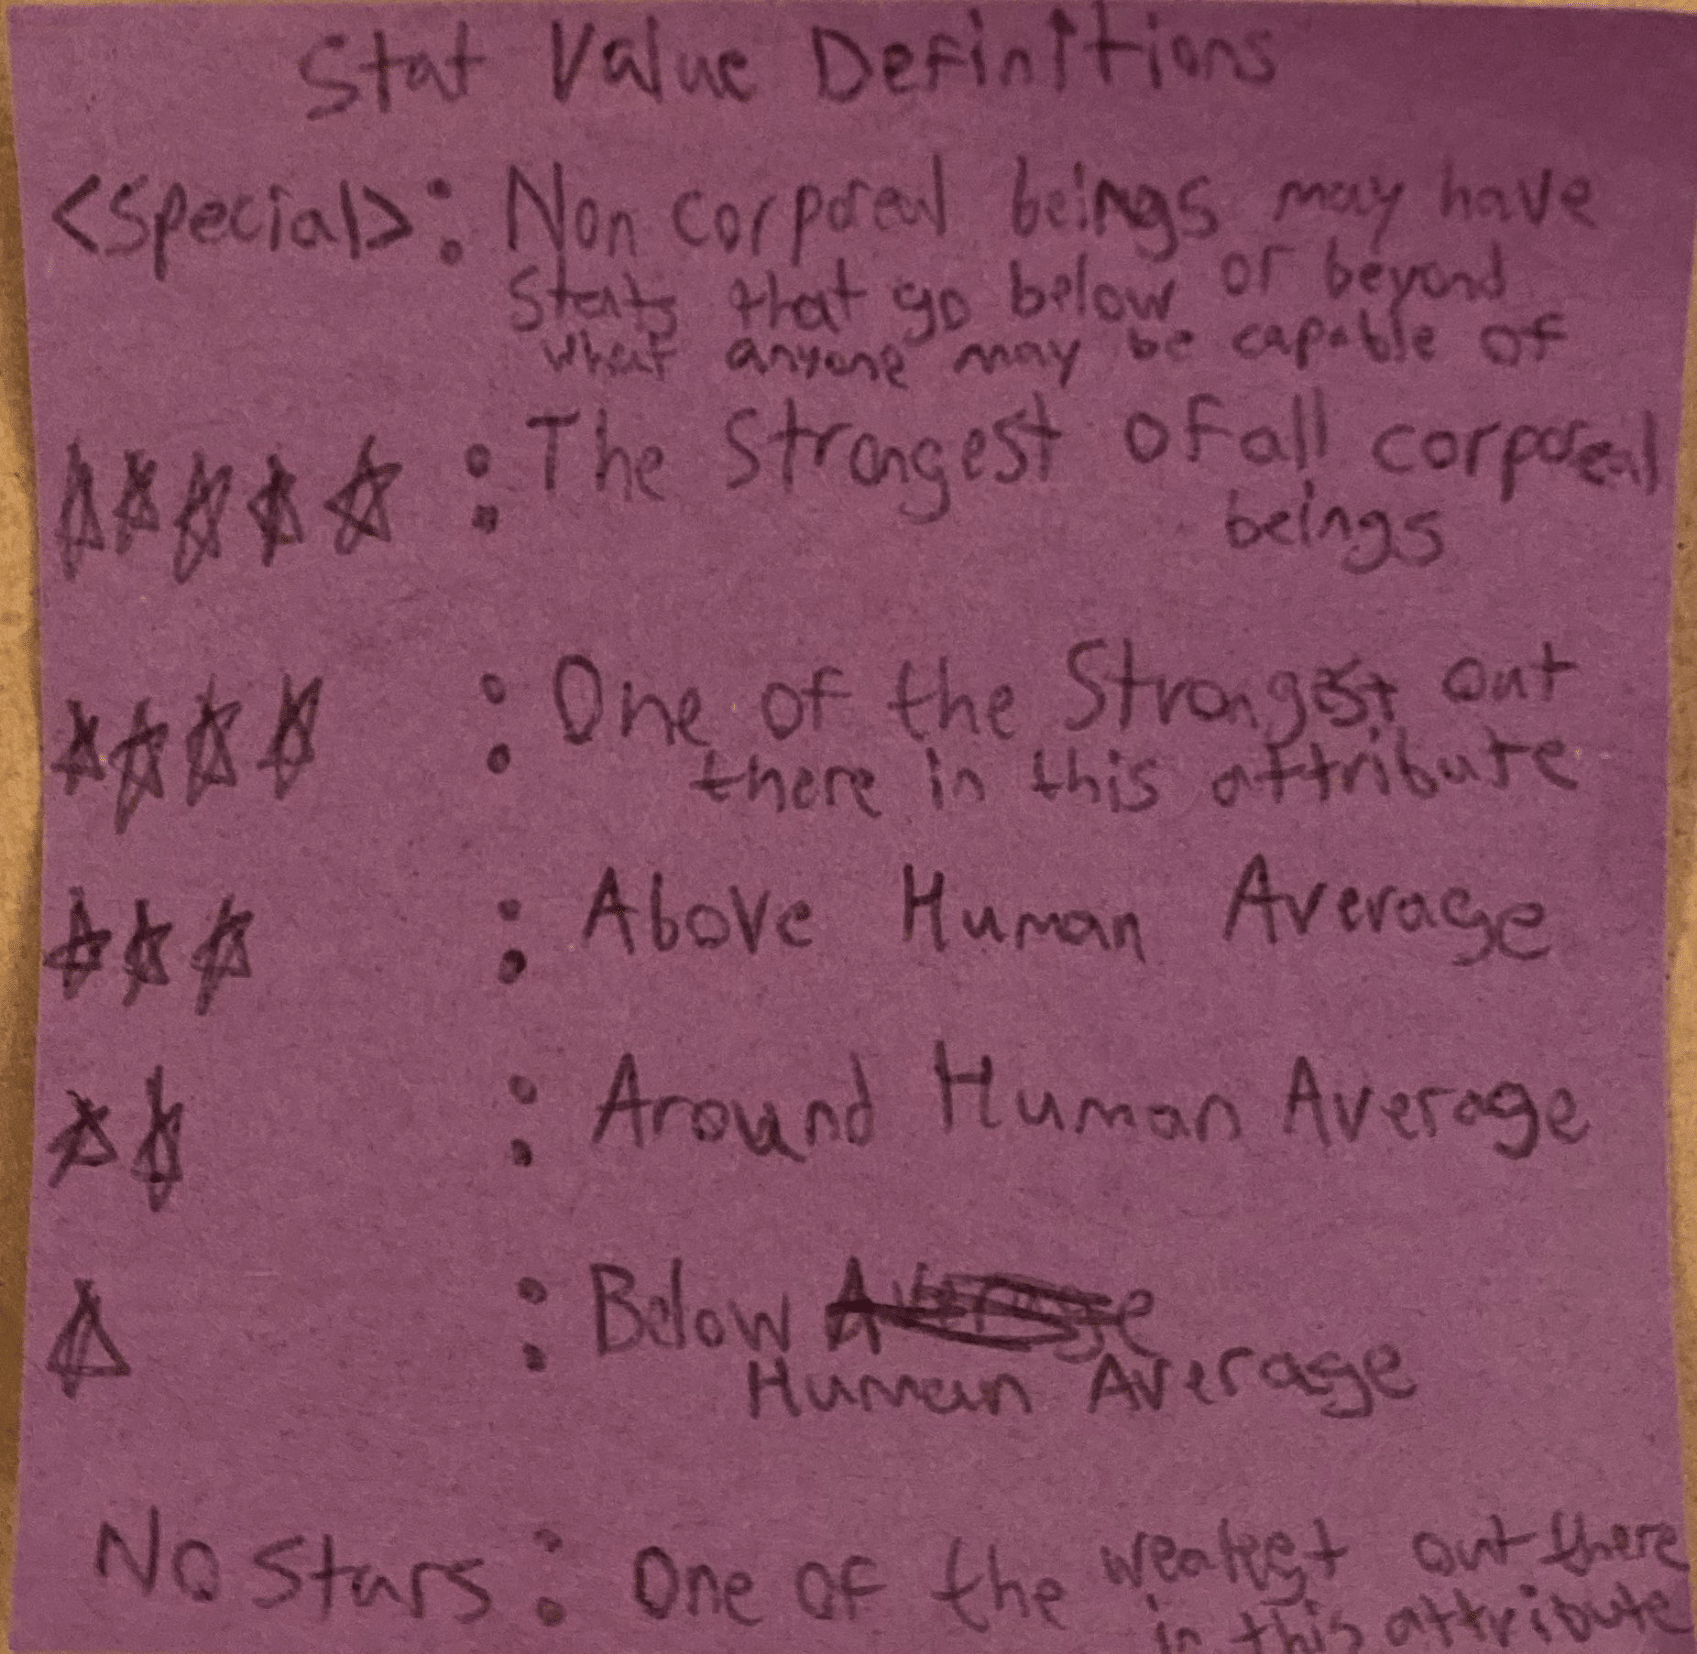 Stat Value Definitions
<Special>: Non corporeal beings may have
Stats that go below or beyond
what anyone may be capable of
☆☆☆☆☆ : The Strongest of all corporeal
beings
☆☆☆☆ : One of the Strongest out
there in this attribute
☆☆☆ : Above Human Average
☆☆ : Around Human Average
☆ : Below Average
Human Average
No Stars : One of the weakest out there
in this attribute